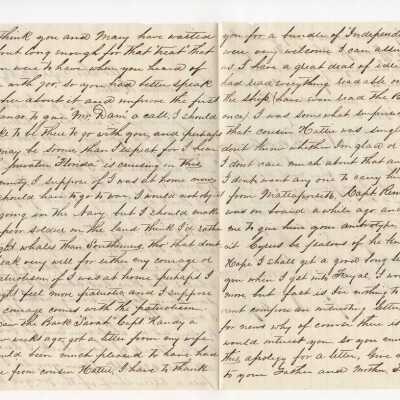 think you and Mary have waited
out long enough for that treat that
were to have when you heard of
so you had better speak
her about it and improve the first
chance to give Mr Dam a call, I should
like to be there to go with you, and perhaps
may be soon, than I expect for I hear
"privateer Florida" is cruising in this
I suppose if I was at home now
should have to go to war, I would not object
going in the Navy but I should make
poor soldier on the land think I'd rather
fight whales than Southerners, tho' that dont
speak very well for either my courage or
patriotism if I was at home perhaps I
might feel more patriotic, and I suppose
courage comes with the patriotism.
the Bark "Sarah" Capt Handy a
few weeks ago, got a letter from my wife
would been much pleased to have had
one from cousin Hattie, I have to thank
you for a bundle of Independ
were very welcome I can assure
as I have a great deal of idle
had read everything readable on
the ship (have even read the
once) I was somewhat surprised
that cousin Hattie was single
dont know whether I'm glad or
I dont care much about that an
I dont want any one to carry
from Mattapoisett, Capt
was on board a while ago and
me to give him your ambrotype
it Cyrus be jealous of he
Hope I shall get a good long
you when I get into Fayal. I wo
more but fact is I've nothing to
rent compose an interesting letter
for news why of course there is
would interest you so you mu
this, apology for a letter, Give
to your Father and Mother,